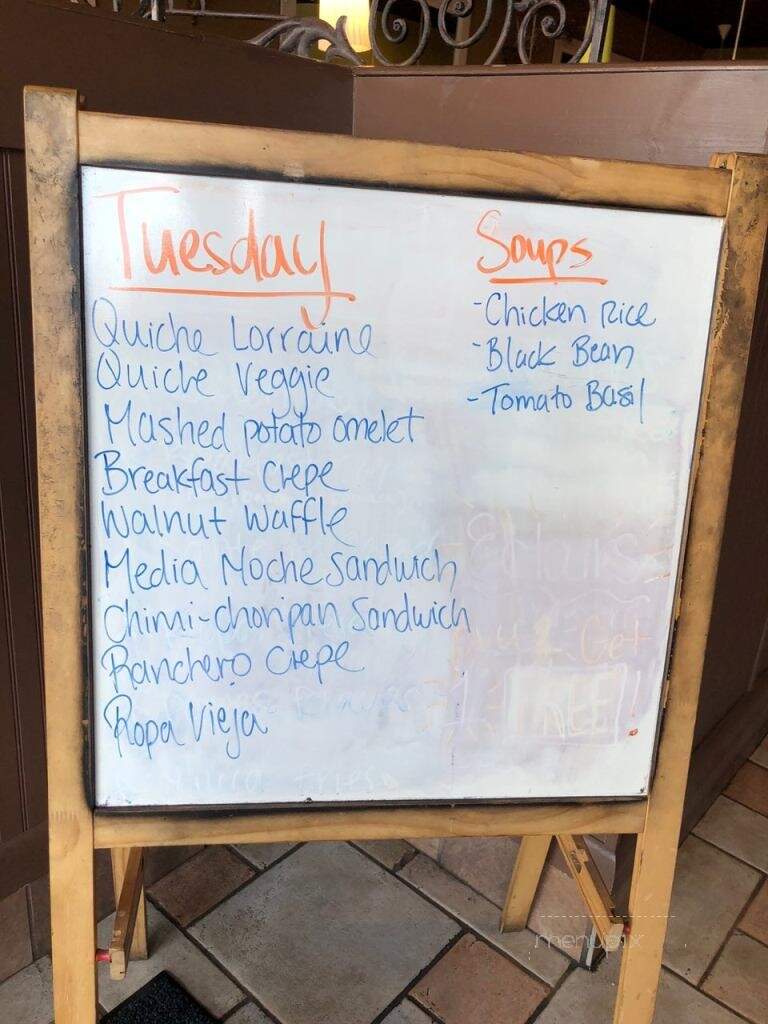 Tuesday
Quiche Lorraine
Quiche Veggie
Mashed potato omelet
Breakfast Crepe
Walnut Waffle
Media Noche Sandwich
Chimi-choripan Sandwich
Ranchero Crepe
Ropa Vieja
Soups
-Chicken Rice
-Black Bean
-Tomato Basil
menupix